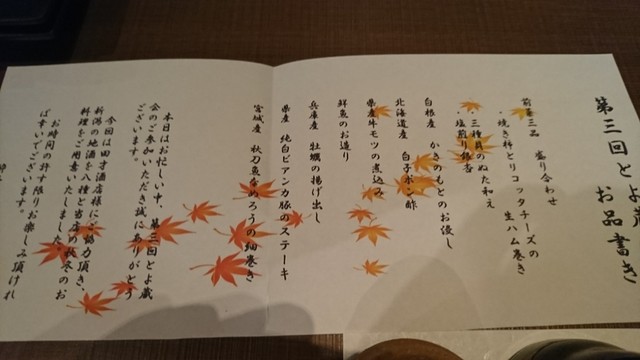 第三回とよ蔵
お品書き
前菜三品 盛り合わせ
・焼き柿とリコッタチーズの
生ハム巻き
・三種貝のぬた和え
・塩煎り銀杏
白根産 かきのもとのお浸し
北海道産 白子ポン酢
県産牛モツの煮込み
鮮魚のお造り
兵庫産 牡蠣の揚げ出し
県産 純白ビアンカ豚のステーキ
宮城産 秋刀魚なめろうの細巻き
本日はお忙しい中、第三回とよ蔵
会のご参加いただき誠にありがとう
ございます。
今回は田才酒店様にご協力頂き、
新潟の地酒を八種と当店の秋冬のお
料理をご用意いたしました。
お時間の許す限りお楽しみ頂けれ
ば幸いでございます。